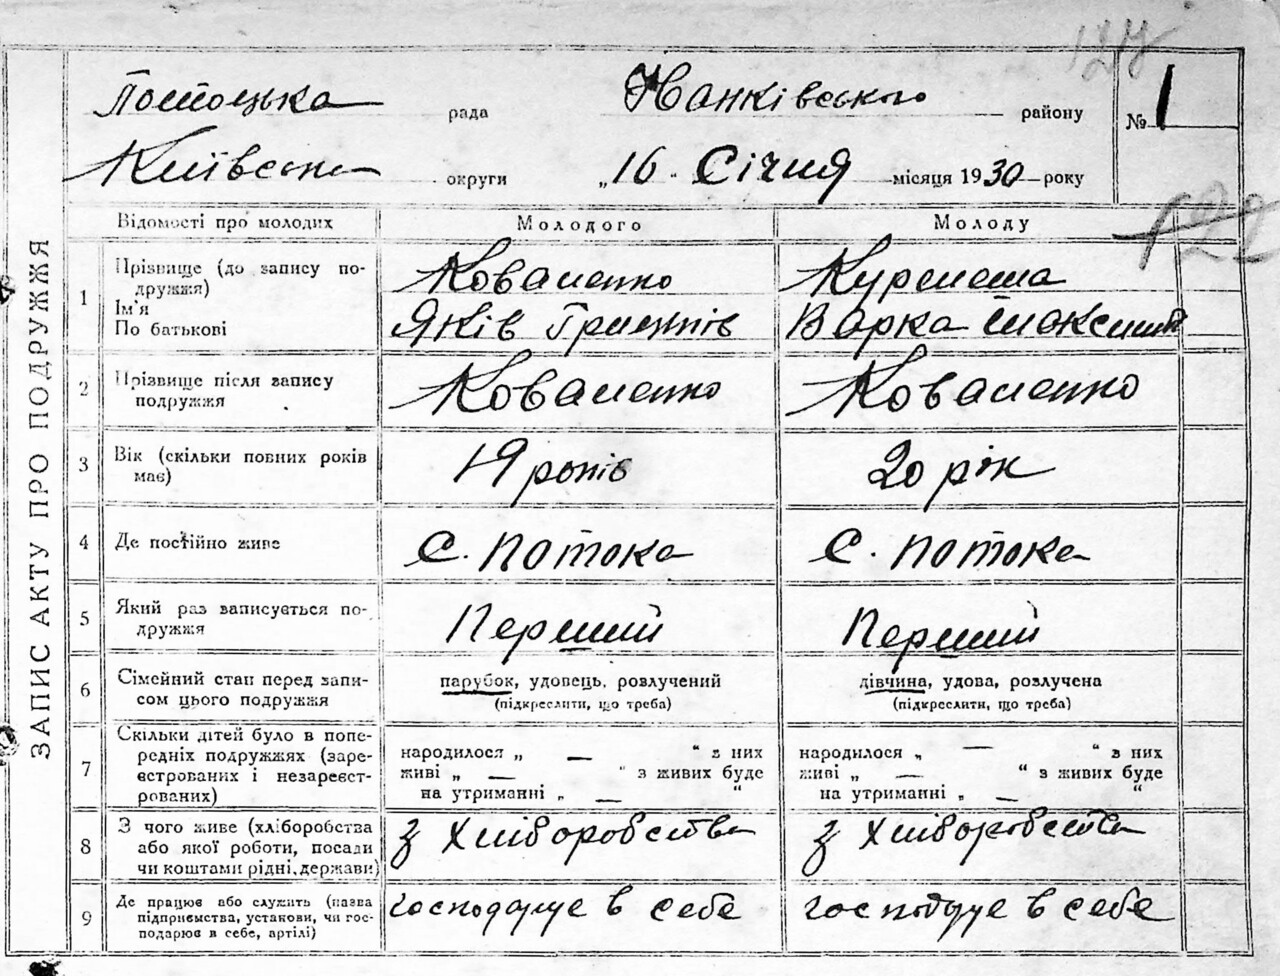 127
Потоцька рада Кагарлицького району № 1
Київська округи „16„ Січня місяця 1930 року
122
ЗАПИС АКТУ ПРО ПОДРУЖЖЯ
Відомості про молодих Молодого Молоду
1 Прізвище (до запису подружжя) Коваленко
Ім'я Яків Варка
По батькові
2 Прізвище після запису подружжя Коваленко Коваленко
3 Вік (скільки повних років має) 19 років 20 рік
4 Де постійно живе С. Потока С. Потока
5 Який раз записується подружжя Перший Перший
6 Сімейний стан перед записом цього подружжя парубок, удовець, розлучений (підкреслити, що треба) дівчина, удова, розлучена (підкреслити, що треба)
7 Скільки дітей було в попередніх подружжях (зареєстрованих і незареєстрованих) народилося „ — “ з них живі „ — “ з живих буде на утриманні „ — “ народилося „ — “ з них живі „ — “ з живих буде на утриманні „ — “
8 З чого живе (хліборобства або якої роботи, посади чи коштами рідні, держави) з Хліборобства з Хліборобства
9 Де працює або служить (назва підприємства, установи, чи господарює в себе, артілі) господарює в себе в себе